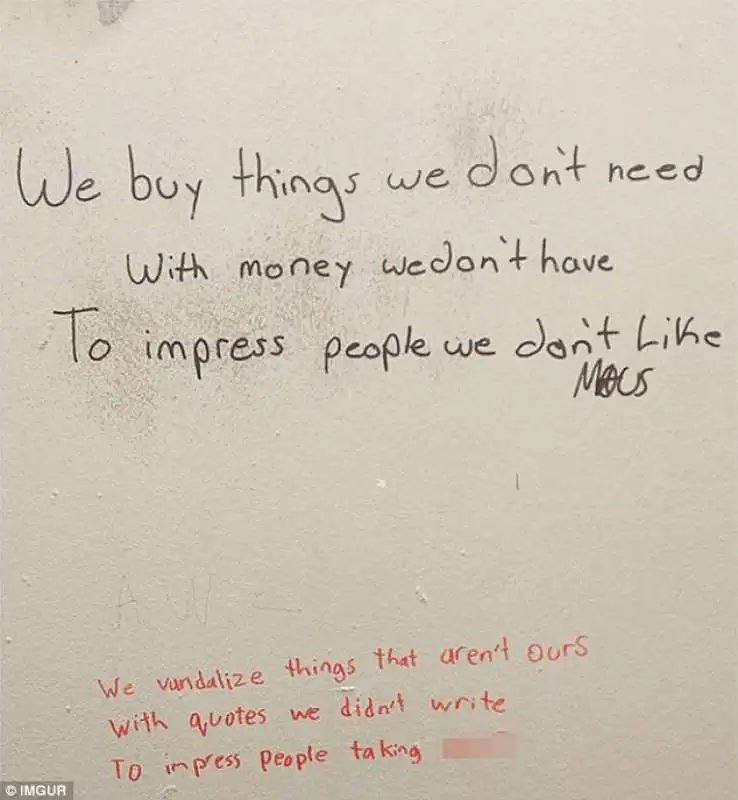 We buy things we don't need
With money we don't have
To impress people we don't Like
A W
We vandalize things that aren't ours
With quotes we didn't write
To impress people taking
© IMGUR